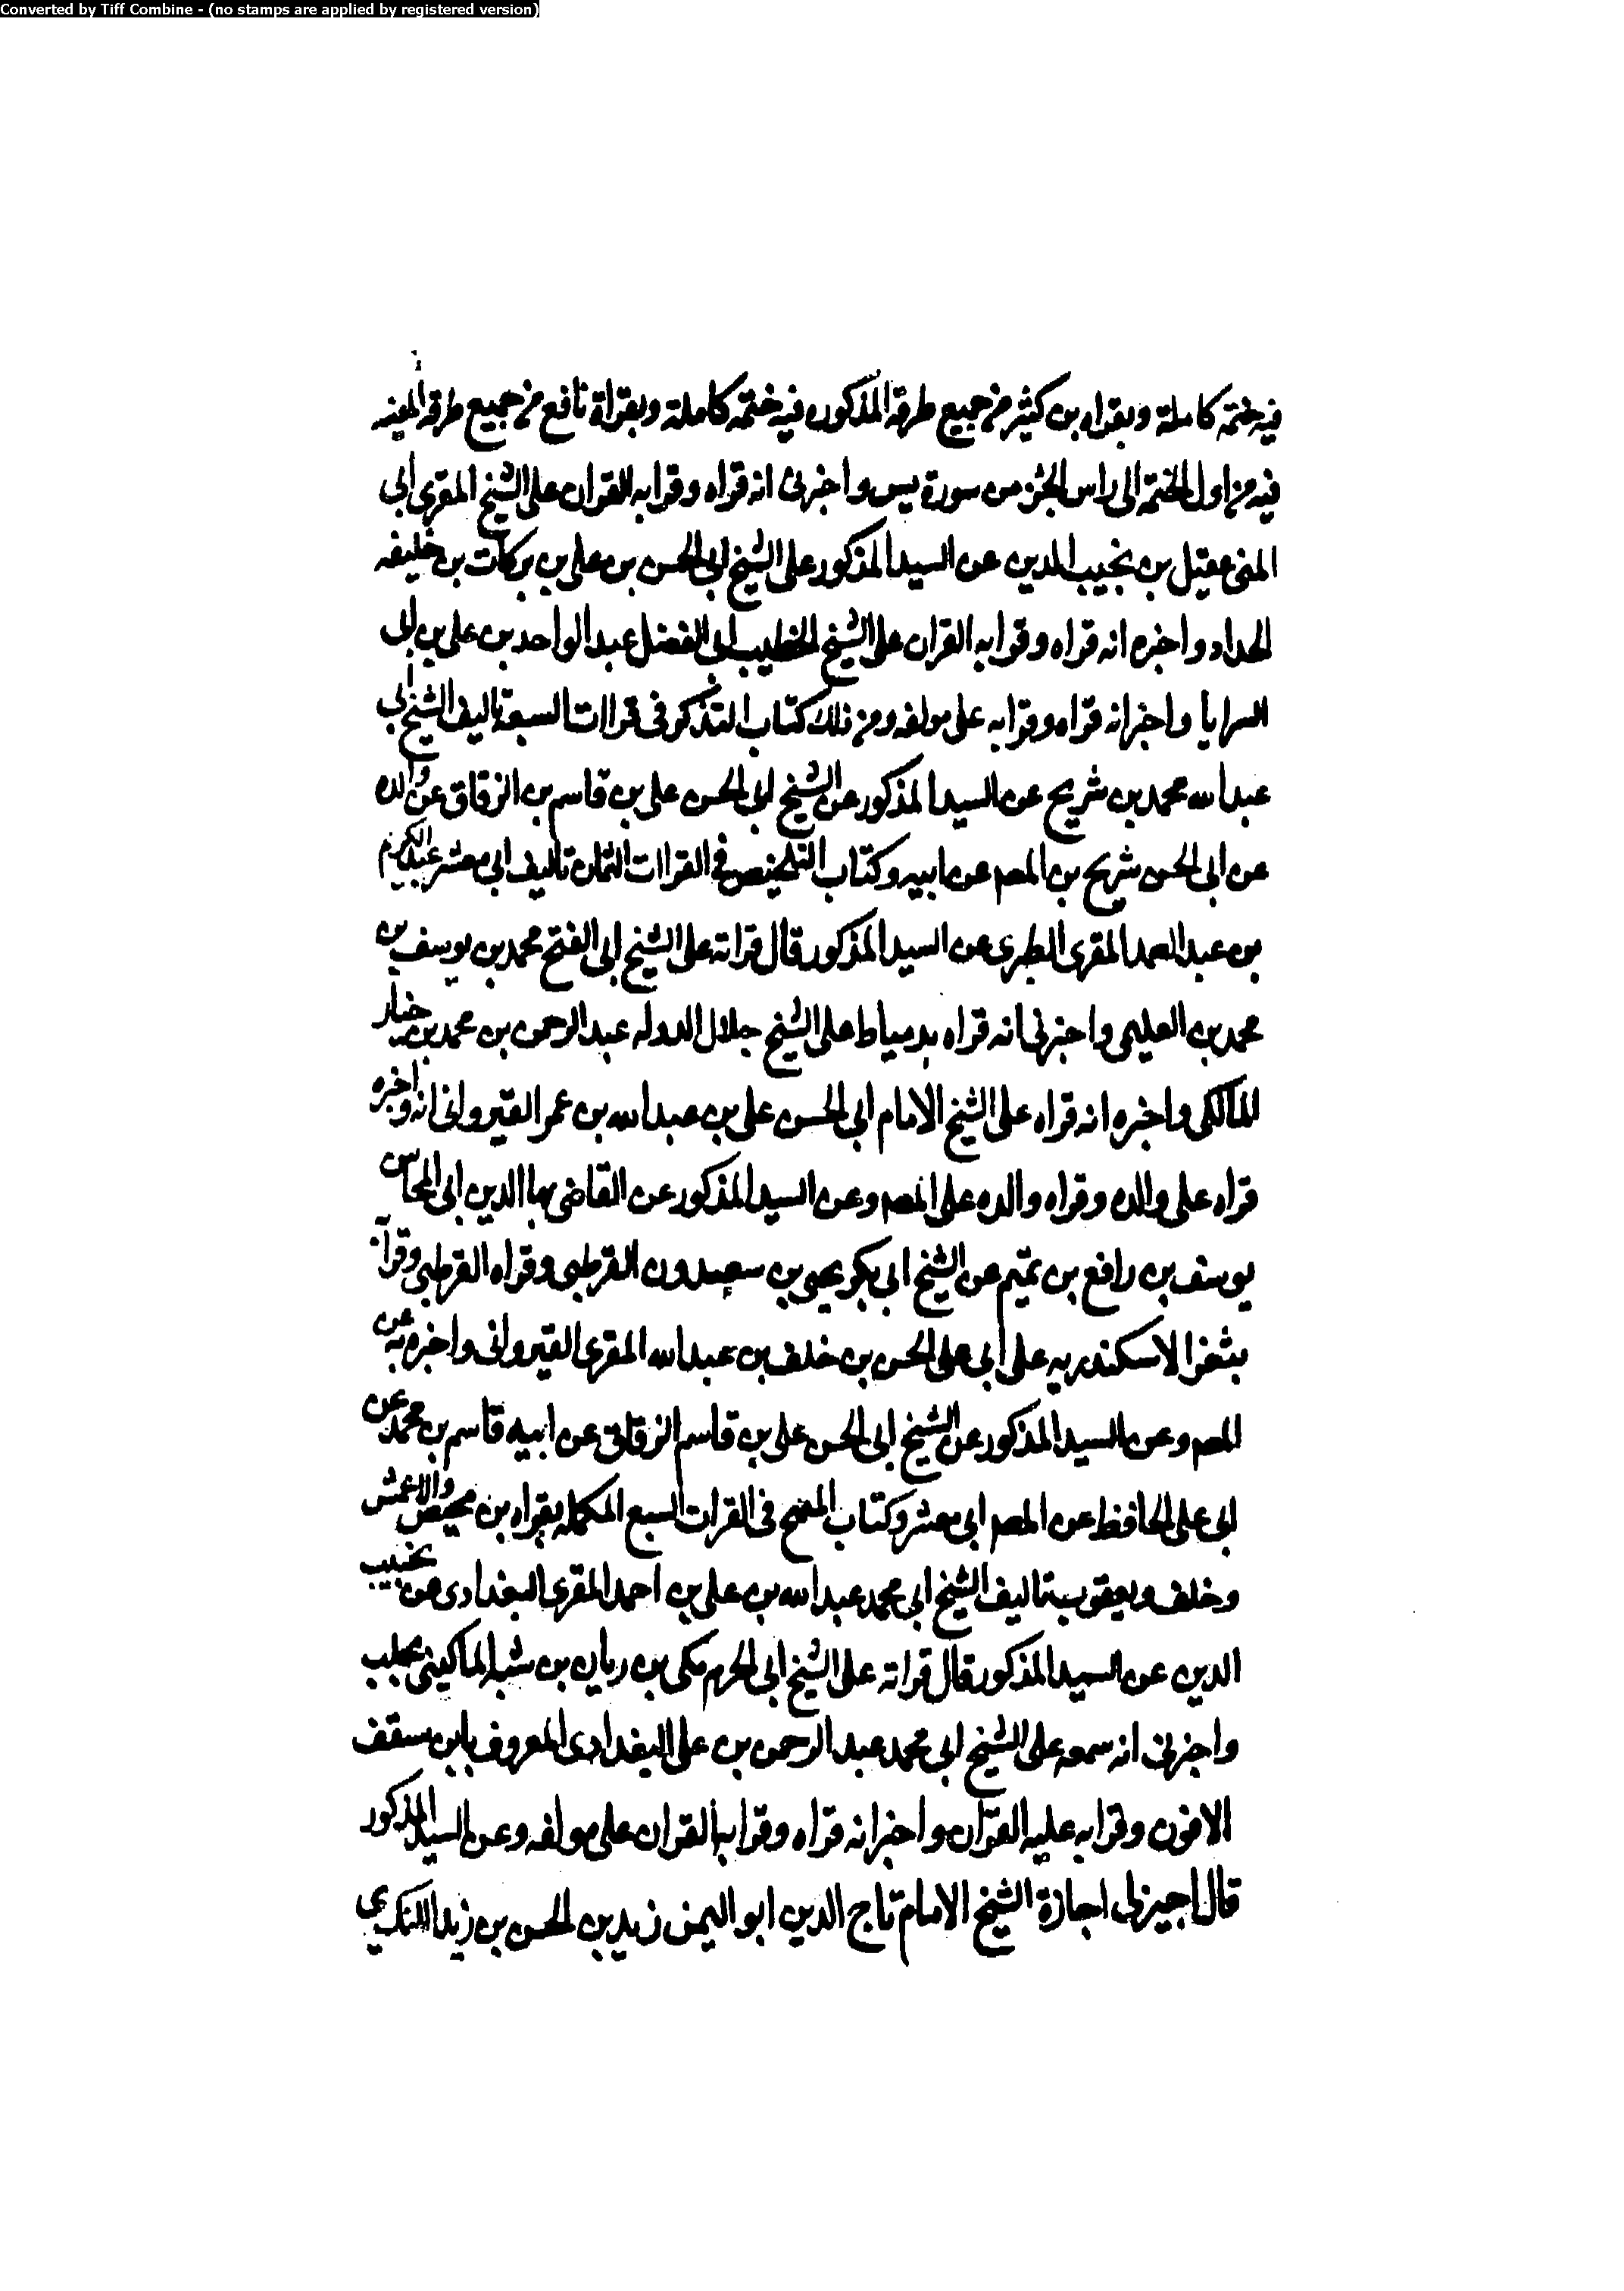 Converted by Tiff Combine - (no stamps are applied by registered version)
فيه ختمه كاملة وبقراه بن كثير من جميع طرقه المذكوره فيه ختمه كاملة وبقراة نافع من جميع طرقه
فيه من اول الختمة الى راس الجز من سورة يس واخبرنى انه قراه وقرا به القران على الشيخ المقرى ابى
عقيل بن نجيب الدين عن السيد المذكور على الشيخ ابى الحسن بن على بن بركات بن خليفه
الحداد واخبره انه قراه وقرا به القران على الشيخ الخطيب ابى الفضل عبد الواحد بن على بن ابى
السرايا واخبر انه قراه وقرا به على مولفه ومن ذلك كتاب التذكر فى قراات السبعة تاليف الشيخ ابى
عبد الله محمد بن شريح عن السيد المذكور عن الشيخ ابى الحسن على بن قاسم بن الزقاق عن والده
عن ابى الحسن شريح بن المصم عن ابيه وكتاب التلخيص فى القراات الثمان تاليف ابى معشر عبد الكريم
بن عبد الصمد المقرى الطبرى عن السيد المذكور قال قراته على الشيخ ابى الفتح محمد بن يوسف بن
محمد بن العليمى واخبرنى انه قراه بدمياط على الشيخ جلال الدوله عبد الرحمن بن محمد بن
المالكى واخبره انه قراه على الشيخ الامام ابى الحسن على بن عبد الله بن عمر القيروانى واخبره انه
قراه على والده وقراه والده على المصم وعن السيد المذكور عن القاضى بها الدين ابى المحاسن
يوسف بن رافع بن تميم عن الشيخ ابى بكر يحيى بن سعدون القرطبى وقراه القرطبى وقرا به
بثغر الاسكندريه على ابى على الحسن بن خلف بن عبد الله المقرى القيروانى واخبره به عن
المصم وعن السيد المذكور عن الشيخ ابى الحسن على بن قاسم الزقاق عن ابيه قاسم بن محمد عن
ابى على الحافظ عن المصم ابى معشر وكتاب فى القرات السبع المكمله بقراه بن محيصن والاعمش
وخلف ويعقوب تاليف الشيخ ابى محمد عبد الله بن على بن احمد المقرى البغدادى عن نجيب
الدين عن السيد المذكور قال قراته على الشيخ ابى الحرم مكى بن ريان بن شبه الماكينى بحلب
واخبرنى انه سمعه على الشيخ ابى محمد عبد الرحمن بن على البغدادى المعروف بابن سقف
الافون وقرا به عليه القرآن واخبر انه قراه وقرا به القران على مولفه وعن السيد المذكور
قال اجيز لى اجازة الشيخ الامام تاج الدين ابو اليمن زيد بن الحسن بن زيد الكندي